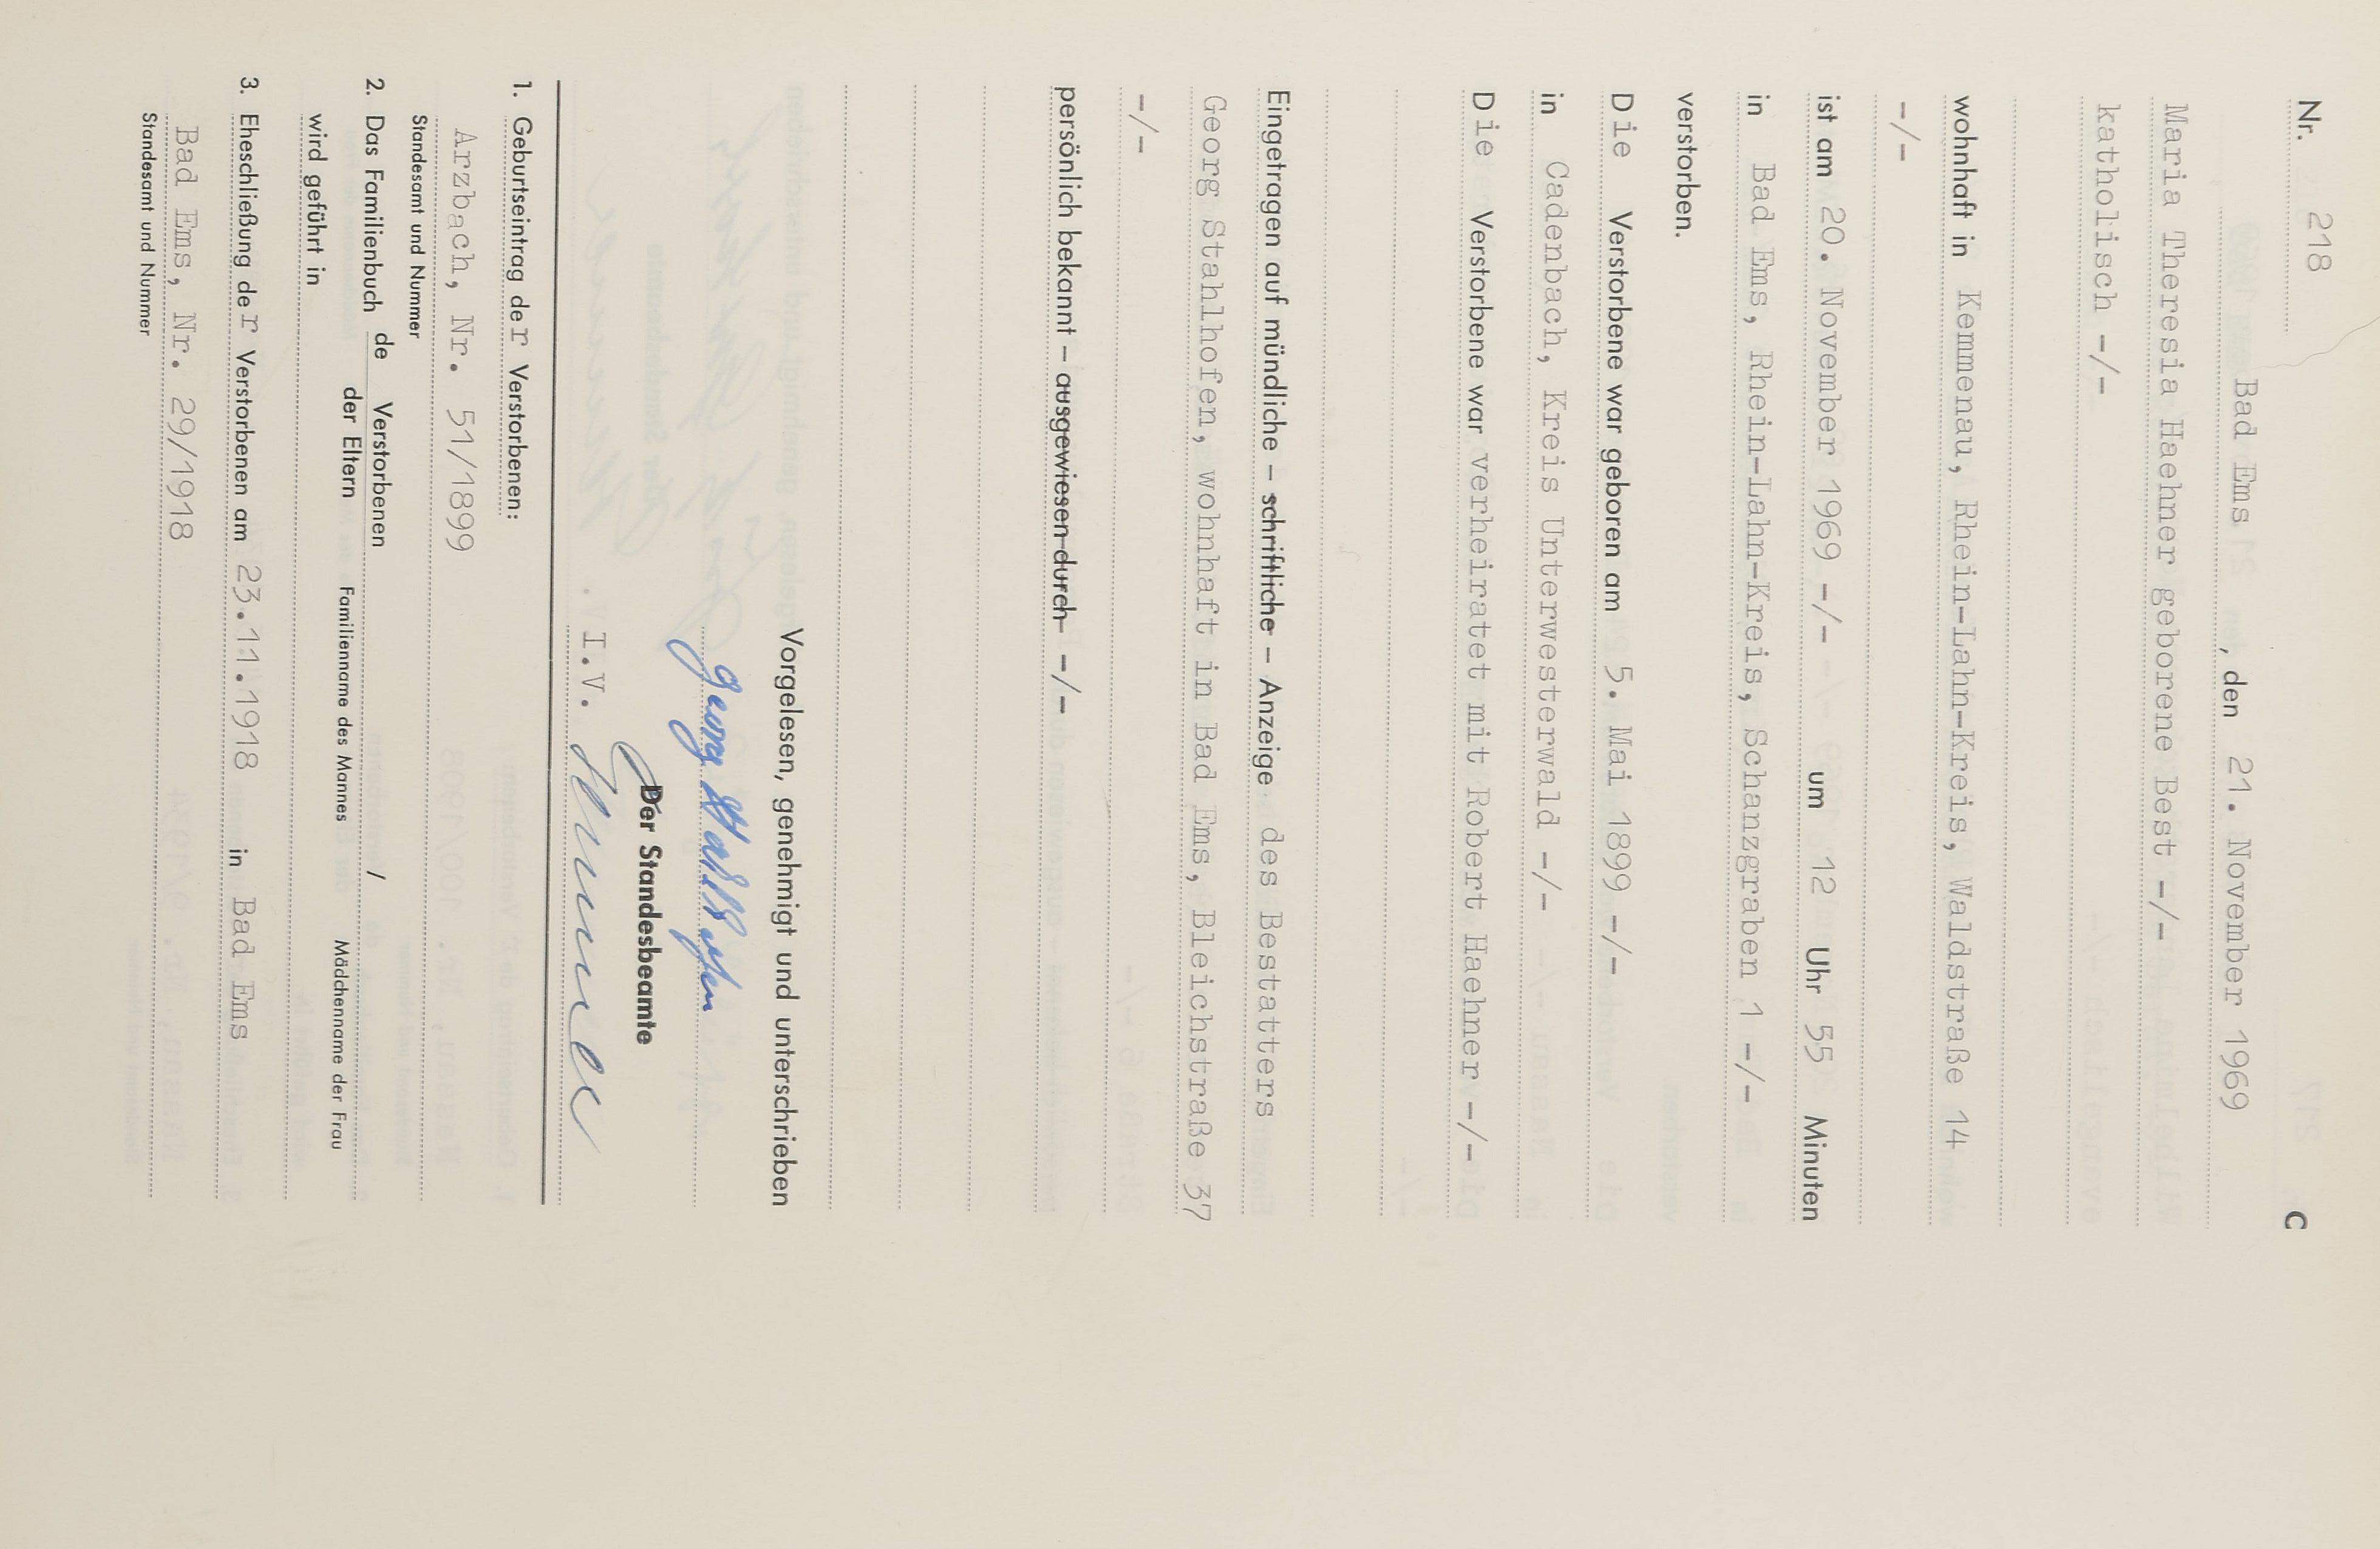 Nr. 218
C
Bad Ems, den 21. November 1969
Maria Theresia Haehner geborene Best -/-
katholisch -/-
wohnhaft in Kemmenau, Rhein-Lahn-Kreis, Waldstraße 14
-/-
ist am 20. November 1969 -/- um 12 Uhr 55 Minuten
in Bad Ems, Rhein-Lahn-Kreis, Schanzgraben 1 -/-
verstorben.
Die Verstorbene war geboren am 5. Mai 1899 -/-
in Cadenbach, Kreis Unterwesterwald -/-
Die Verstorbene war verheiratet mit Robert Haehner -/-
Eingetragen auf mündliche – schriftliche – Anzeige des Bestatters
Georg Stahlhofen, wohnhaft in Bad Ems, Bleichstraße 37
-/-
persönlich bekannt – ausgewiesen durch -/-
Vorgelesen, genehmigt und unterschrieben
Georg Stahlhofen
Der Standesbeamte
I.V.
1. Geburtseintrag der Verstorbenen:
Arzbach, Nr. 51/1899
Standesamt und Nummer
2. Das Familienbuch de Verstorbenen /
der Eltern Familienname des Mannes Mädchenname der Frau
wird geführt in
3. Eheschließung der Verstorbenen am 23.11.1918 in Bad Ems
Bad Ems, Nr. 29/1918
Standesamt und Nummer